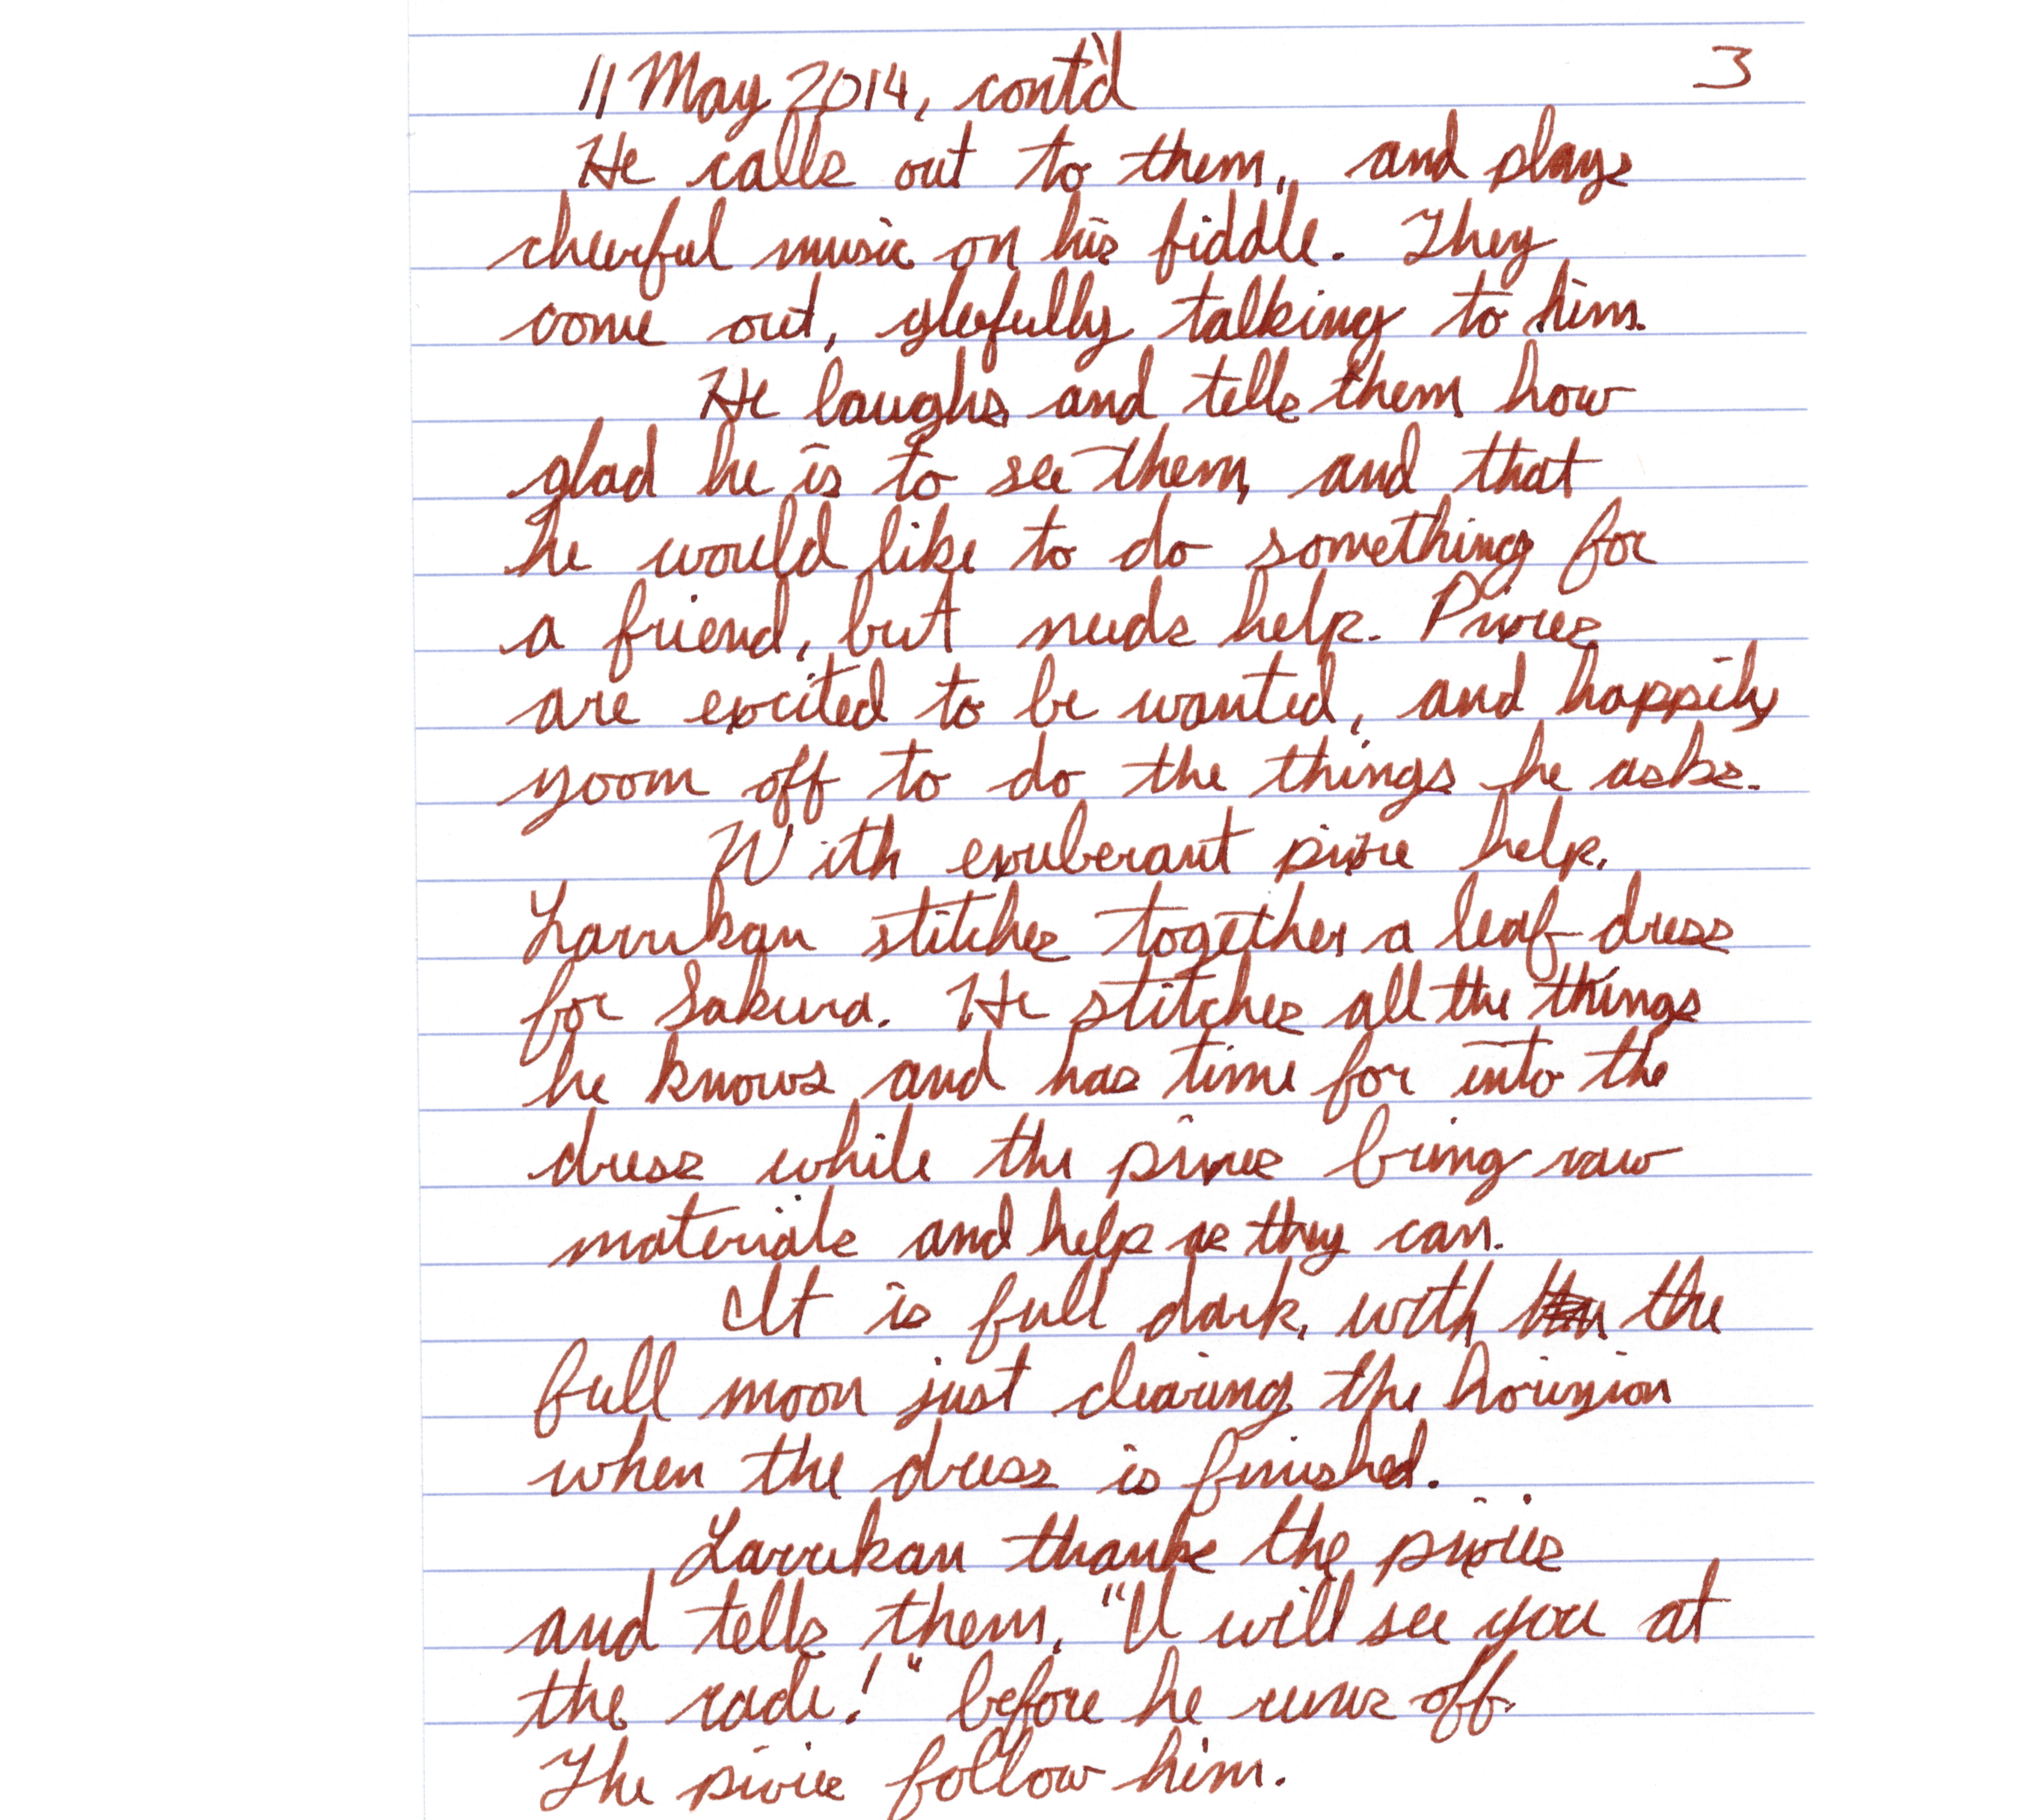 11 May 2014, cont'd 3
He calls out to them, and plays
cheerful music on his fiddle. They
come out, gleefully talking to him.
He laughs and tells them how
glad he is to see them, and that
he would like to do something for
a friend, but needs help. Pixies
are excited to be wanted, and happily
zoom off to do the things he asks.
With exuberant pixie help,
Larrikan stitches together a leaf dress
for Sakura. He stitches all the things
he knows and has time for into the
dress while the pixies bring raw
materials and help as they can.
It is full dark, with the
full moon just clearing the horizion
when the dress is finished.
Larrikan thanks the pixies
and tells them, "I will see you at
the rade!" before he runs off.
The pixies follow him.